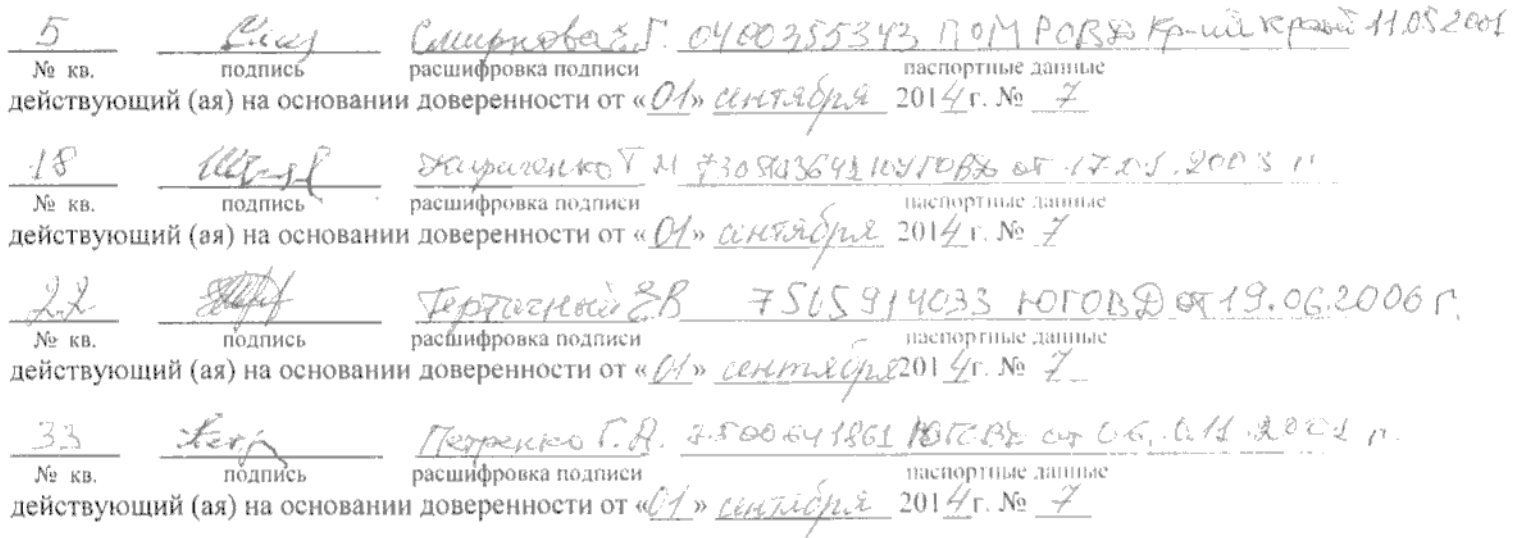 5 Смирнова З.Г. 0400355343 ПОМ РОВД Кр-ий край 11.05.2001
№ кв. подпись расшифровка подписи паспортные данные
действующий (ая) на основании доверенности от «01» сентября 2014 г. № 7
18 Т М от 2003 г.
№ кв. подпись расшифровка подписи паспортные данные
действующий (ая) на основании доверенности от «01» сентября 2014 г. № 7
22 ЕВ 7505914033 ЮГОВД от 19.06.2006 г.
№ кв. подпись расшифровка подписи паспортные данные
действующий (ая) на основании доверенности от «01» сентября 2014 г. № 7
33 Петренко Г.А. 7500641861 ЮГОВД от
№ кв. подпись расшифровка подписи паспортные данные
действующий (ая) на основании доверенности от «01» сентября 2014 г. № 7